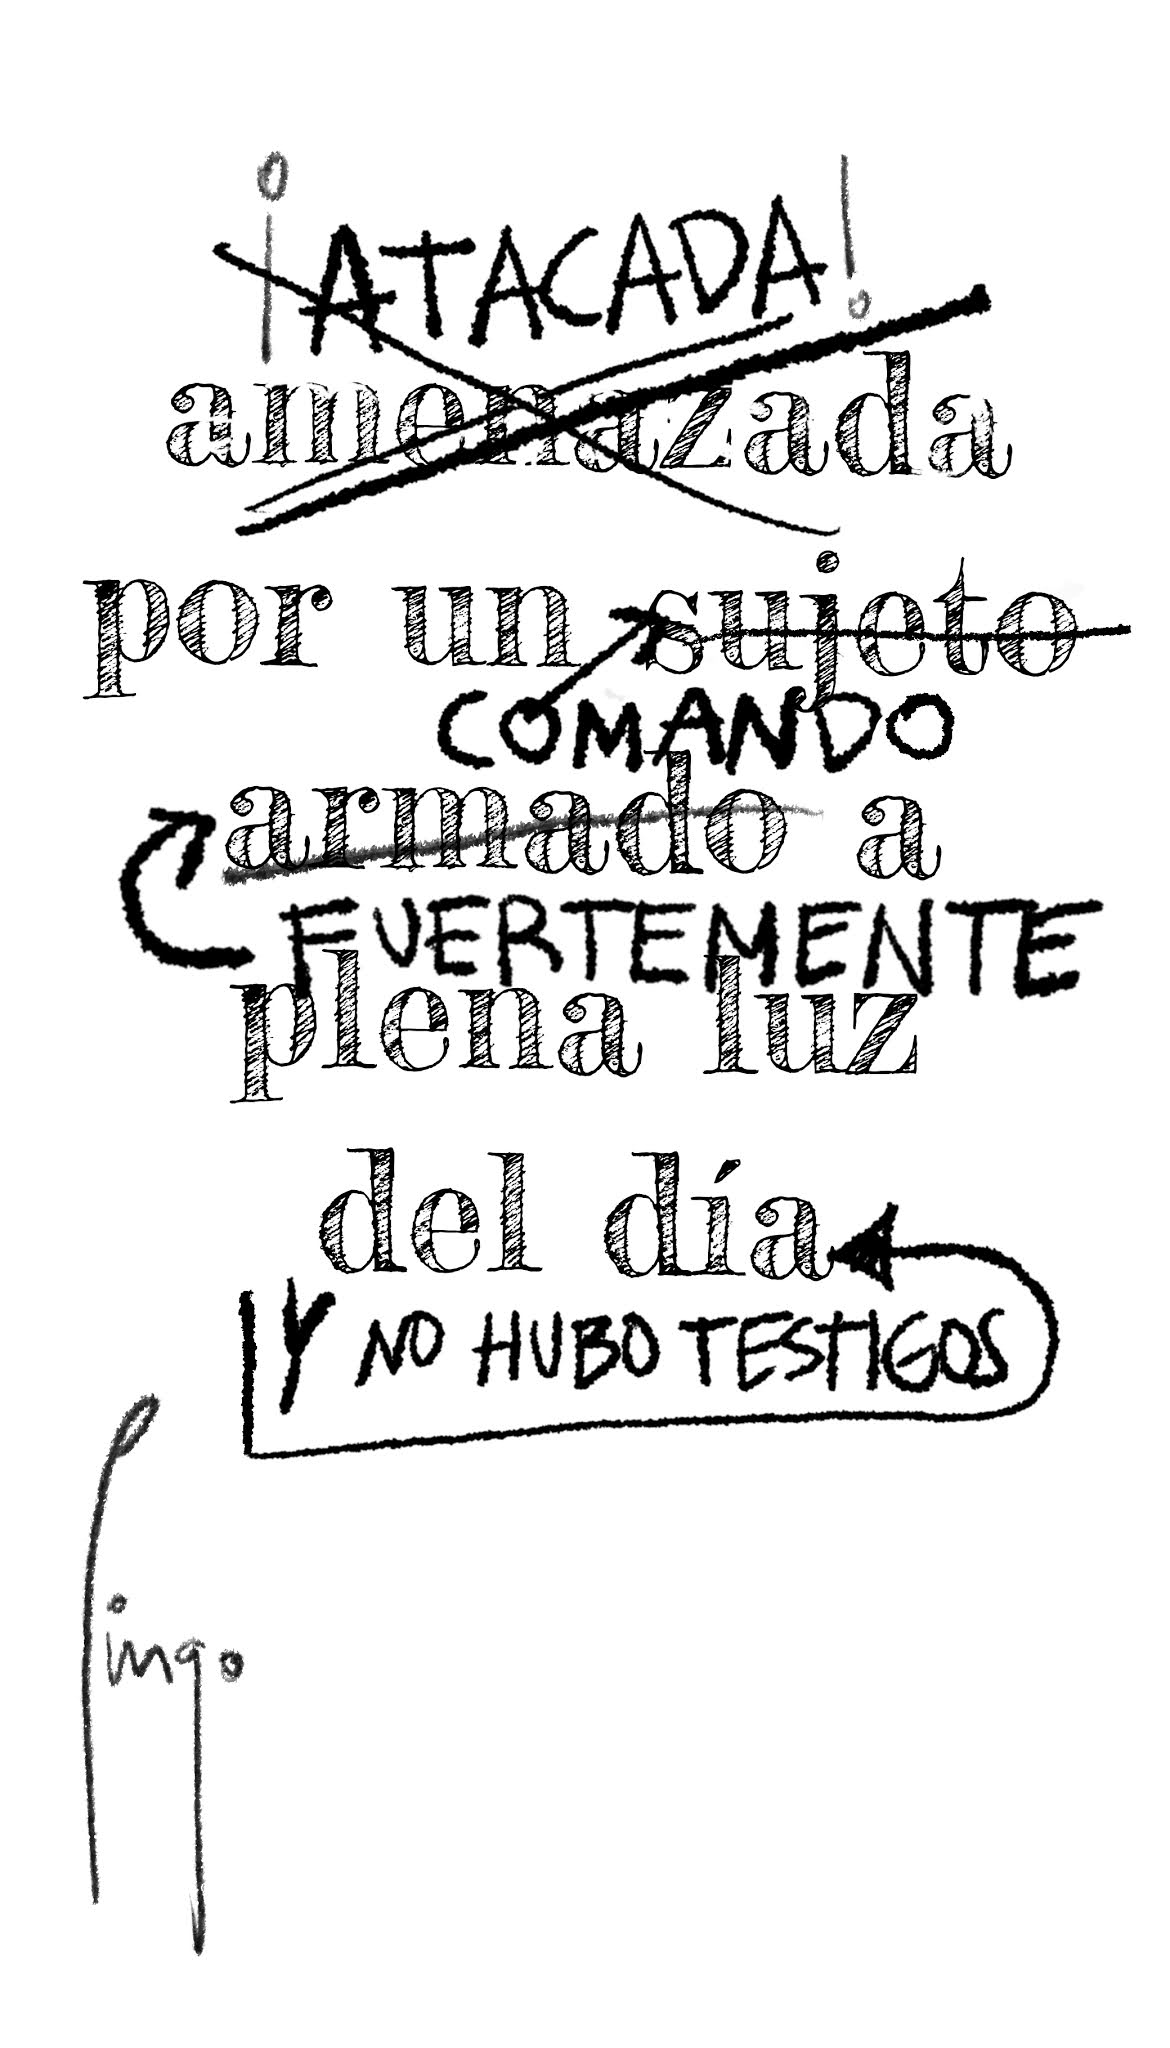 ¡ATACADA!
amenazada
por un sujeto
COMANDO
armado a
FUERTEMENTE
plena luz
del día
Y NO HUBO TESTIGOS